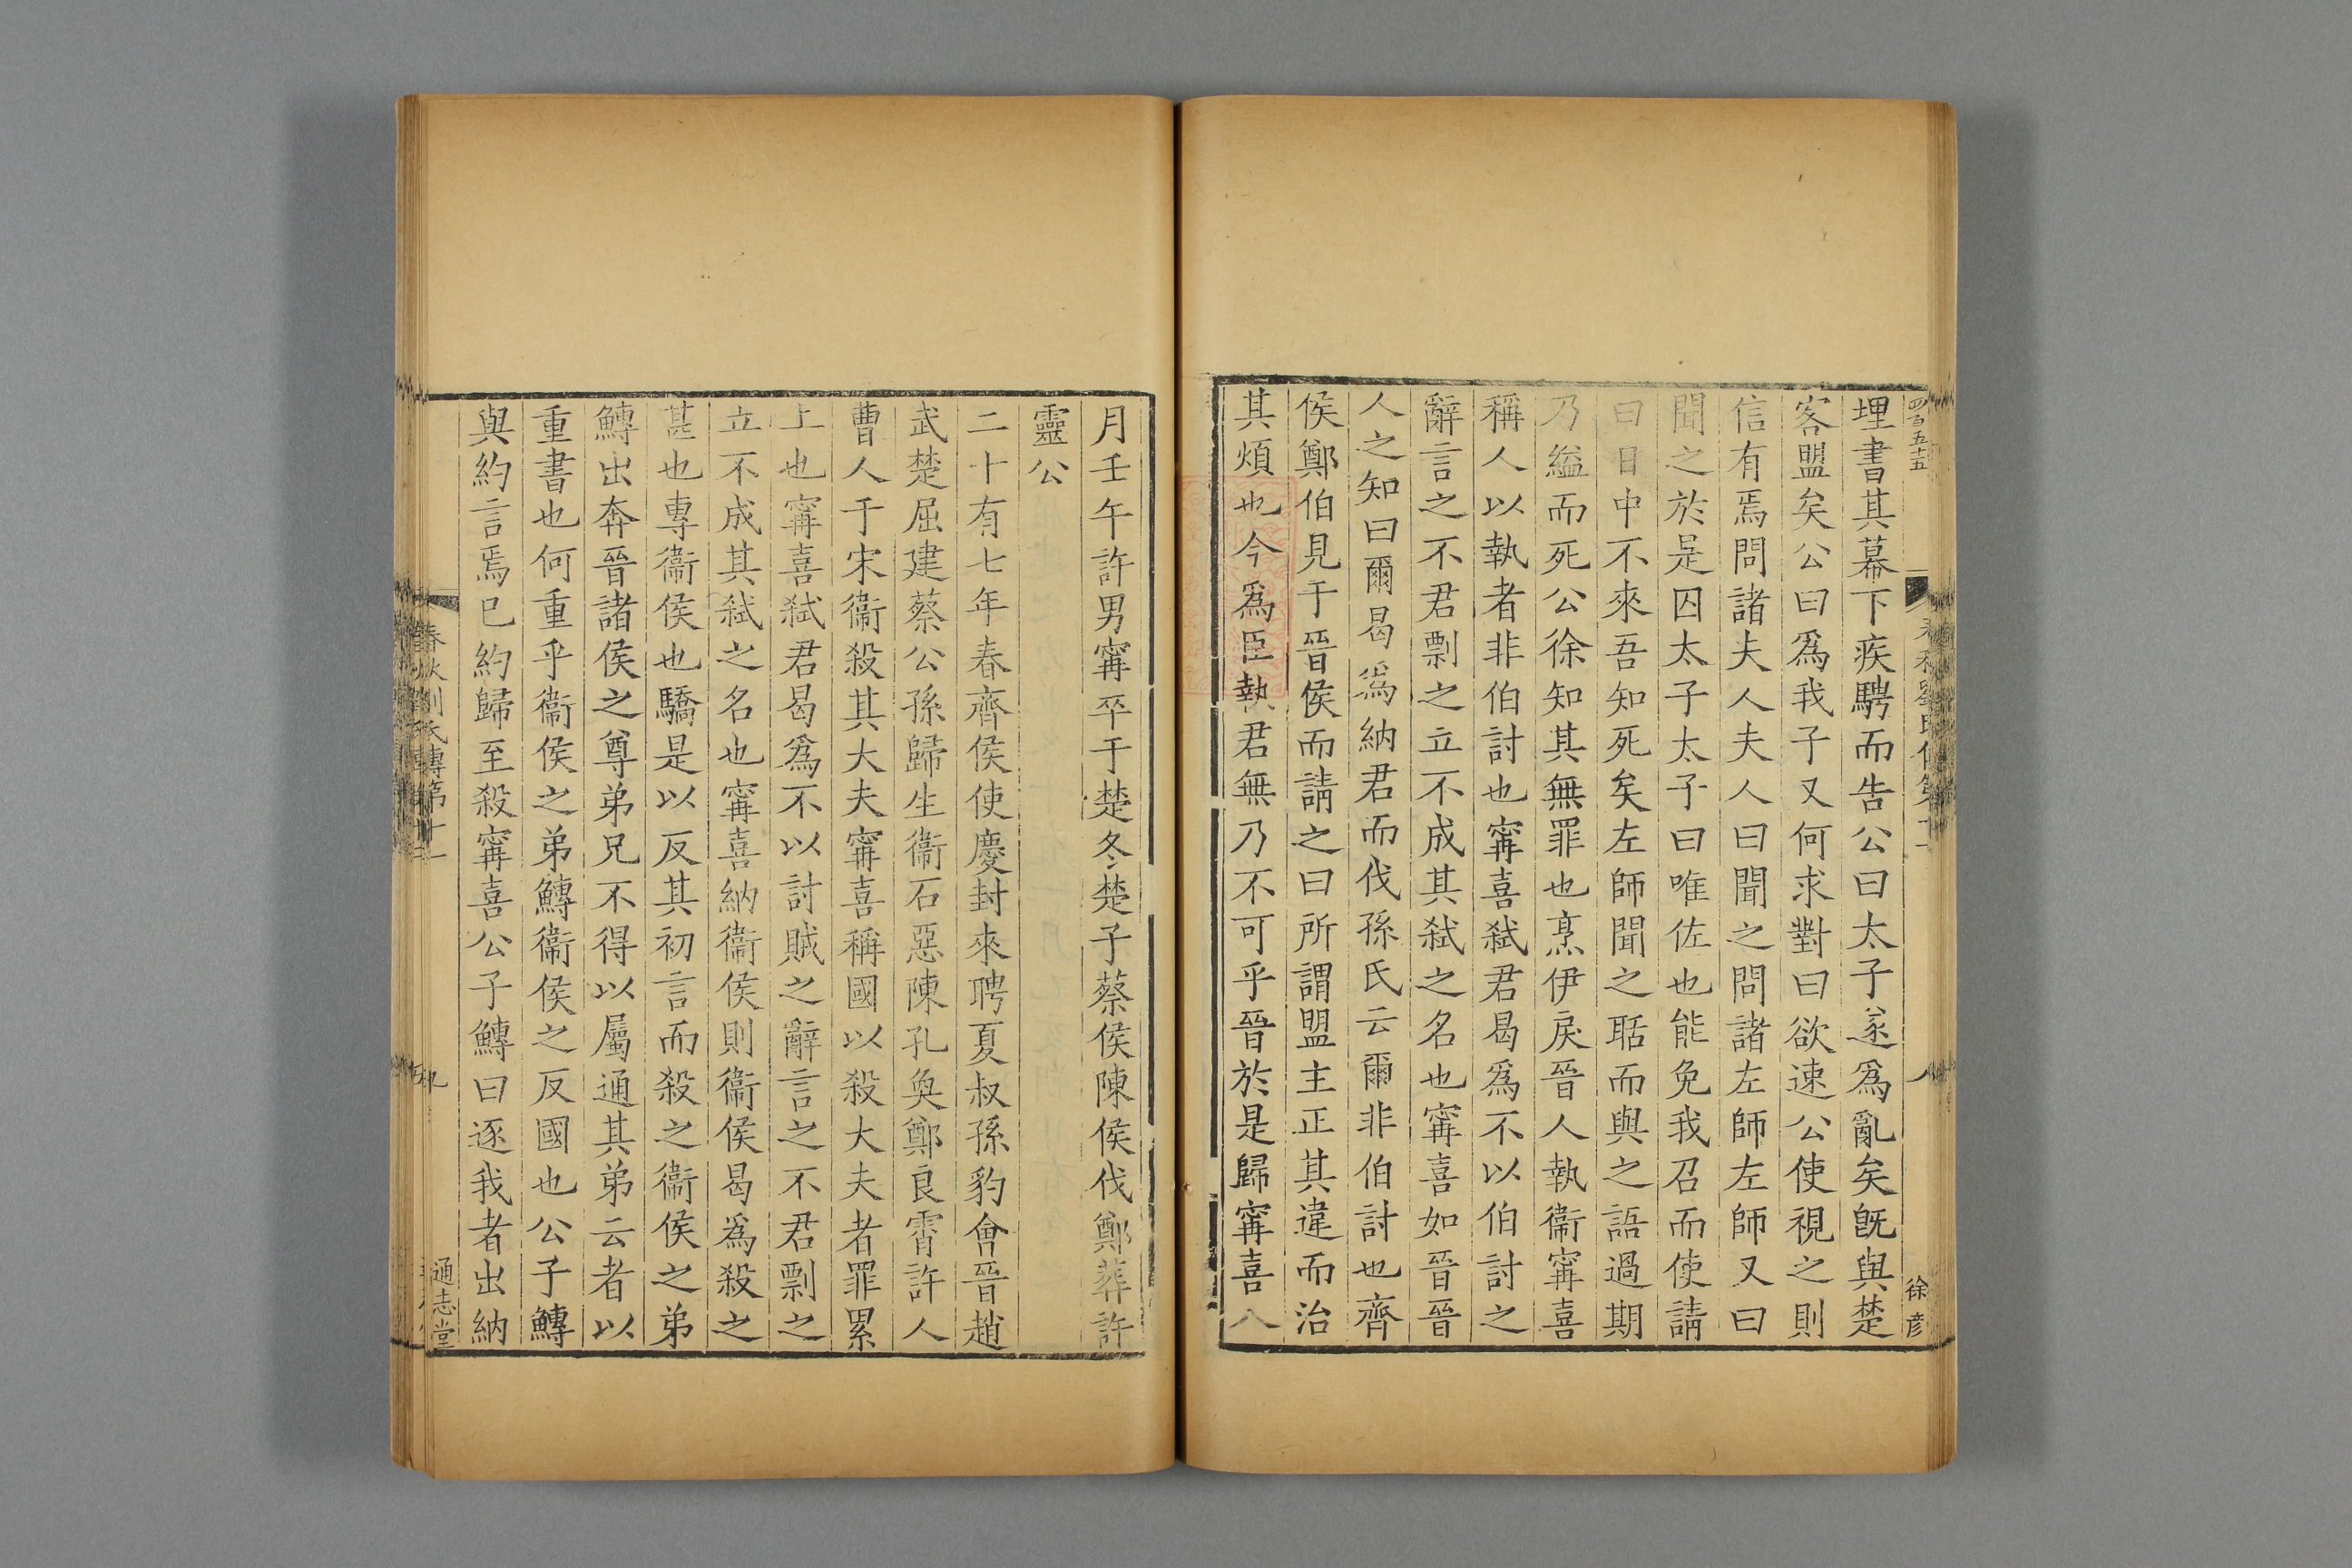 四百五十五
徐彦
埋書其幕下疾騁而告公曰太子遂爲亂矣旣與楚
客盟矣公曰爲我子又何求對曰欲速公使視之則
信有焉問諸夫人夫人曰聞之問諸左師左師又曰
聞之於是囚太子太子曰唯佐也能免我召而使請
曰日中不來吾知死矣左師聞之聒而與之語過期
乃縊而死公徐知其無罪也烹伊戾晉人執衞甯喜
稱人以執者非伯討也甯喜弑君曷爲不以伯討之
辭言之不君剽之立不成其弑之名也甯喜如晉晉
人之知曰爾曷爲納君而伐孫氏云爾非伯討也齊
侯鄭伯見于晉侯而請之曰所謂盟主正其違而治
其煩也今爲臣執君無乃不可乎晉於是歸甯喜八
月壬午許男甯卒于楚冬楚子蔡侯陳侯伐鄭葬許
靈公
二十有七年春齊侯使慶封來聘夏叔孫豹會晉趙
武楚屈建蔡公孫歸生衞石惡陳孔奐鄭良霄許人
曹人于宋衞殺其大夫甯喜稱國以殺大夫者罪累
上也甯喜弑君曷爲不以討賊之辭言之不君剽之
立不成其弑之名也甯喜納衞侯則衞侯曷爲殺之
甚也專衞侯也驕是以反其初言而殺之衞侯之弟
鱄出奔晉諸侯之尊弟兄不得以屬通其弟云者以
重書也何重乎衞侯之弟鱄衞侯之反國也公子鱄
與約言焉已約歸至殺甯喜公子鱄曰逐我者出納
通志堂